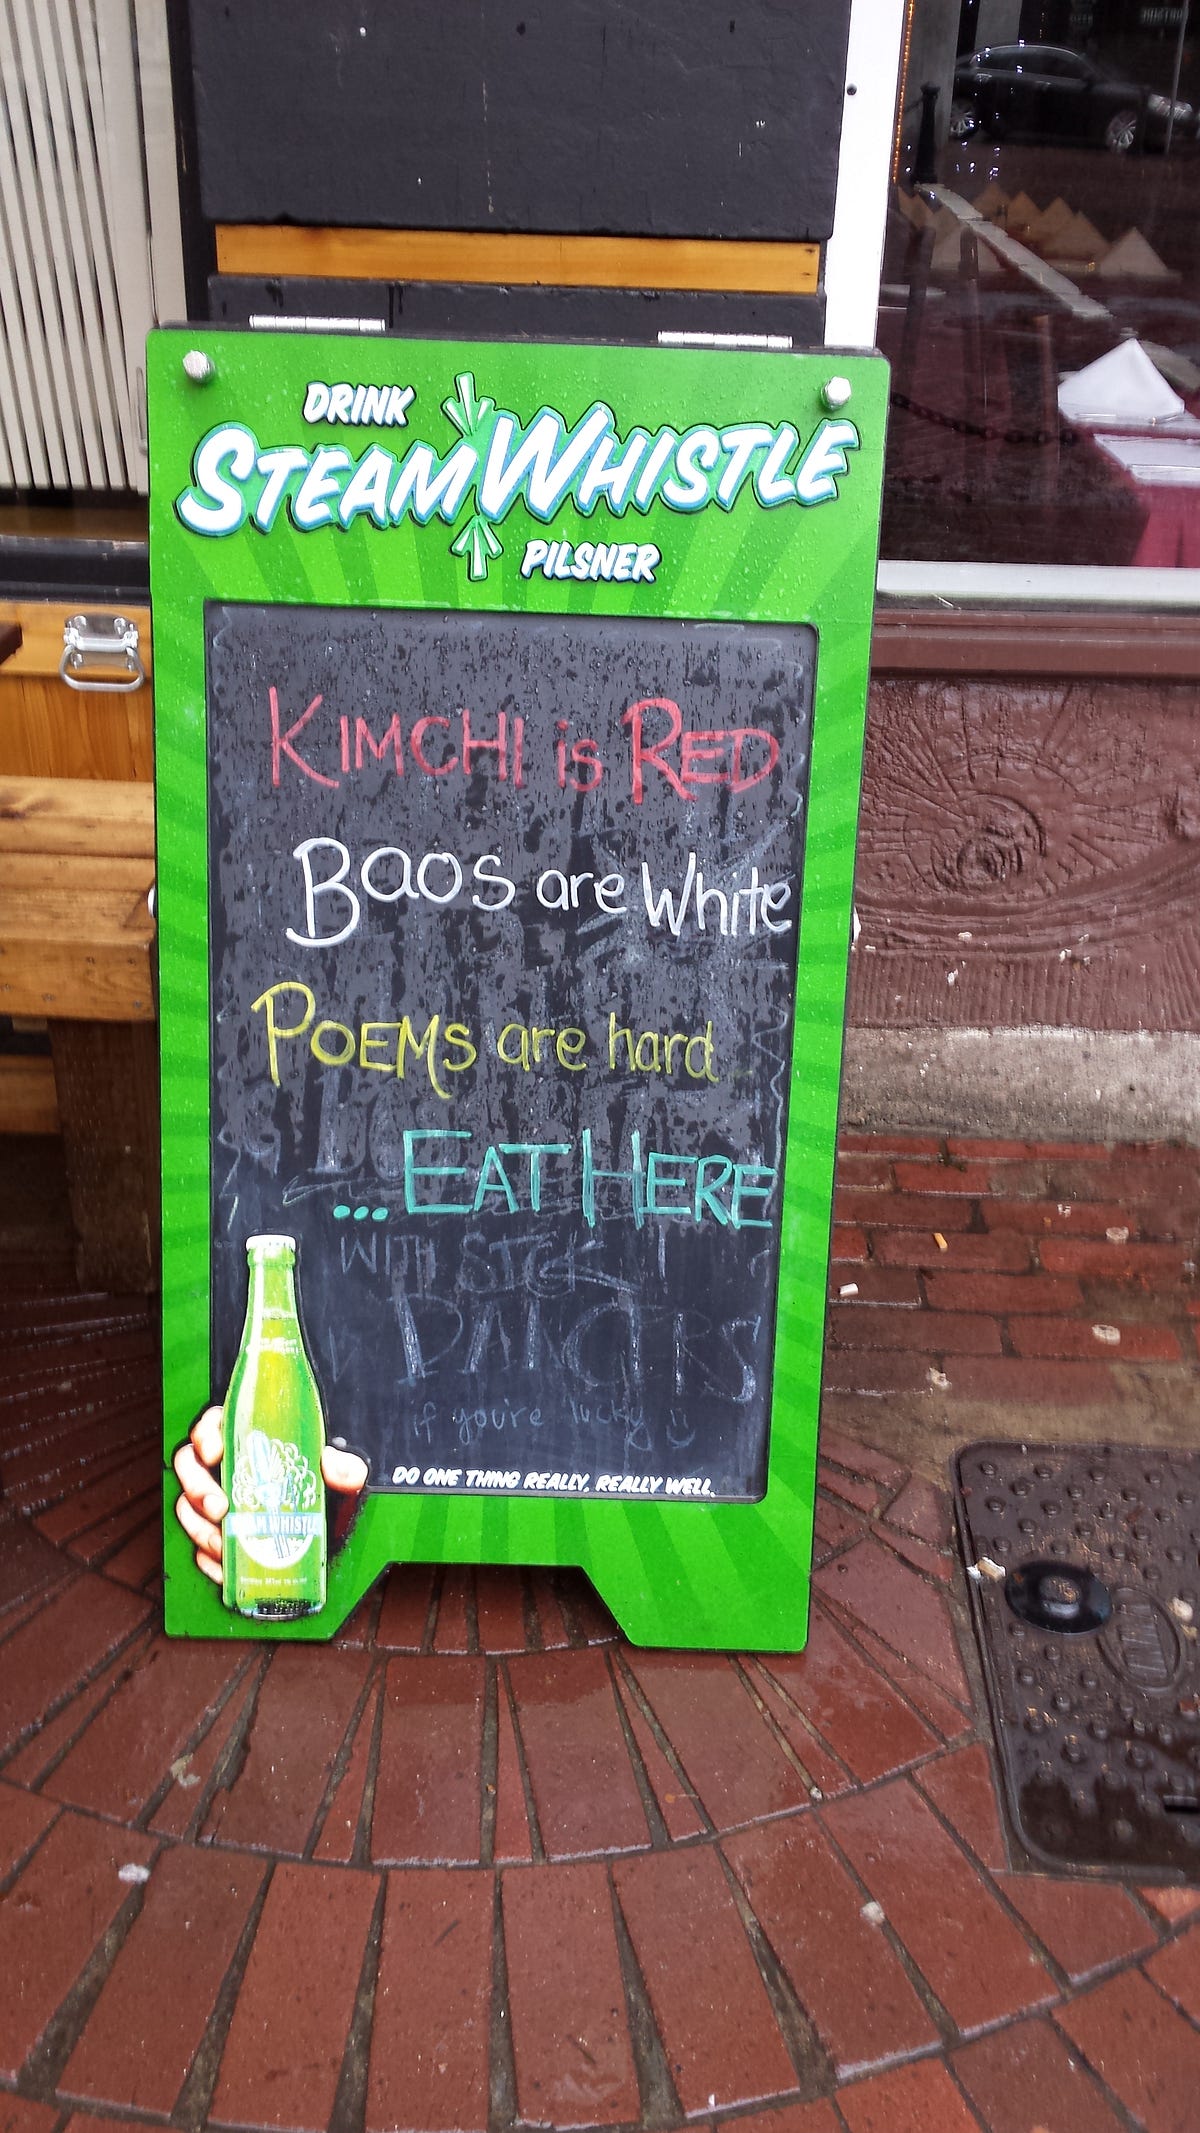 DRINK
STEAM WHISTLE
PILSNER
KIMCHI is RED
BAOS are White
POEMS are hard
... EAT HERE
WITH SICK
DANCERS
if you're lucky
DO ONE THING REALLY, REALLY WELL.